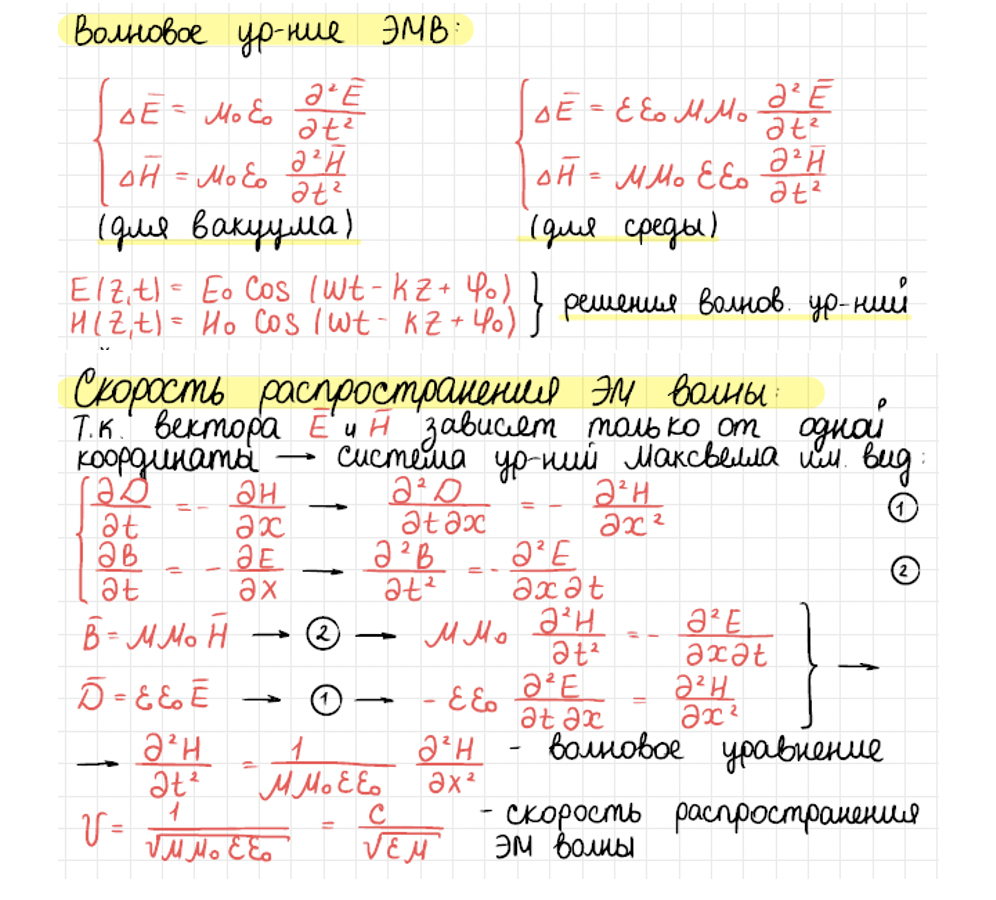 Волновое ур-ние ЭМВ:
{ ΔE̅ = μ₀ε₀ ∂²E̅/∂t² { ΔE̅ = εε₀μμ₀ ∂²E̅/∂t²
ΔH̅ = μ₀ε₀ ∂²H̅/∂t² ΔH̅ = μμ₀εε₀ ∂²H̅/∂t²
(для вакуума) (для среды)
E(z,t) = E₀ cos (wt - kz + φ₀) } решения волнов. ур-ний
H(z,t) = H₀ cos (wt - kz + φ₀)
Скорость распространения ЭМ волны:
Т.к. вектора E̅ и H̅ зависят только от одной
координаты → система ур-ний Максвелла им. вид:
{ ∂D/∂t = - ∂H/∂x → ∂²D/∂t∂x = - ∂²H/∂x² ①
∂B/∂t = - ∂E/∂x → ∂²B/∂t² = - ∂²E/∂x∂t ②
B̅ = μμ₀H̅ → ② → μμ₀ ∂²H/∂t² = - ∂²E/∂x∂t } →
D̅ = εε₀E̅ → ① → - εε₀ ∂²E/∂t∂x = ∂²H/∂x²
→ ∂²H/∂t² = 1/μμ₀εε₀ ∂²H/∂x² - волновое уравнение
υ = 1/√μμ₀εε₀ = c/√εμ - скорость распространения
ЭМ волны